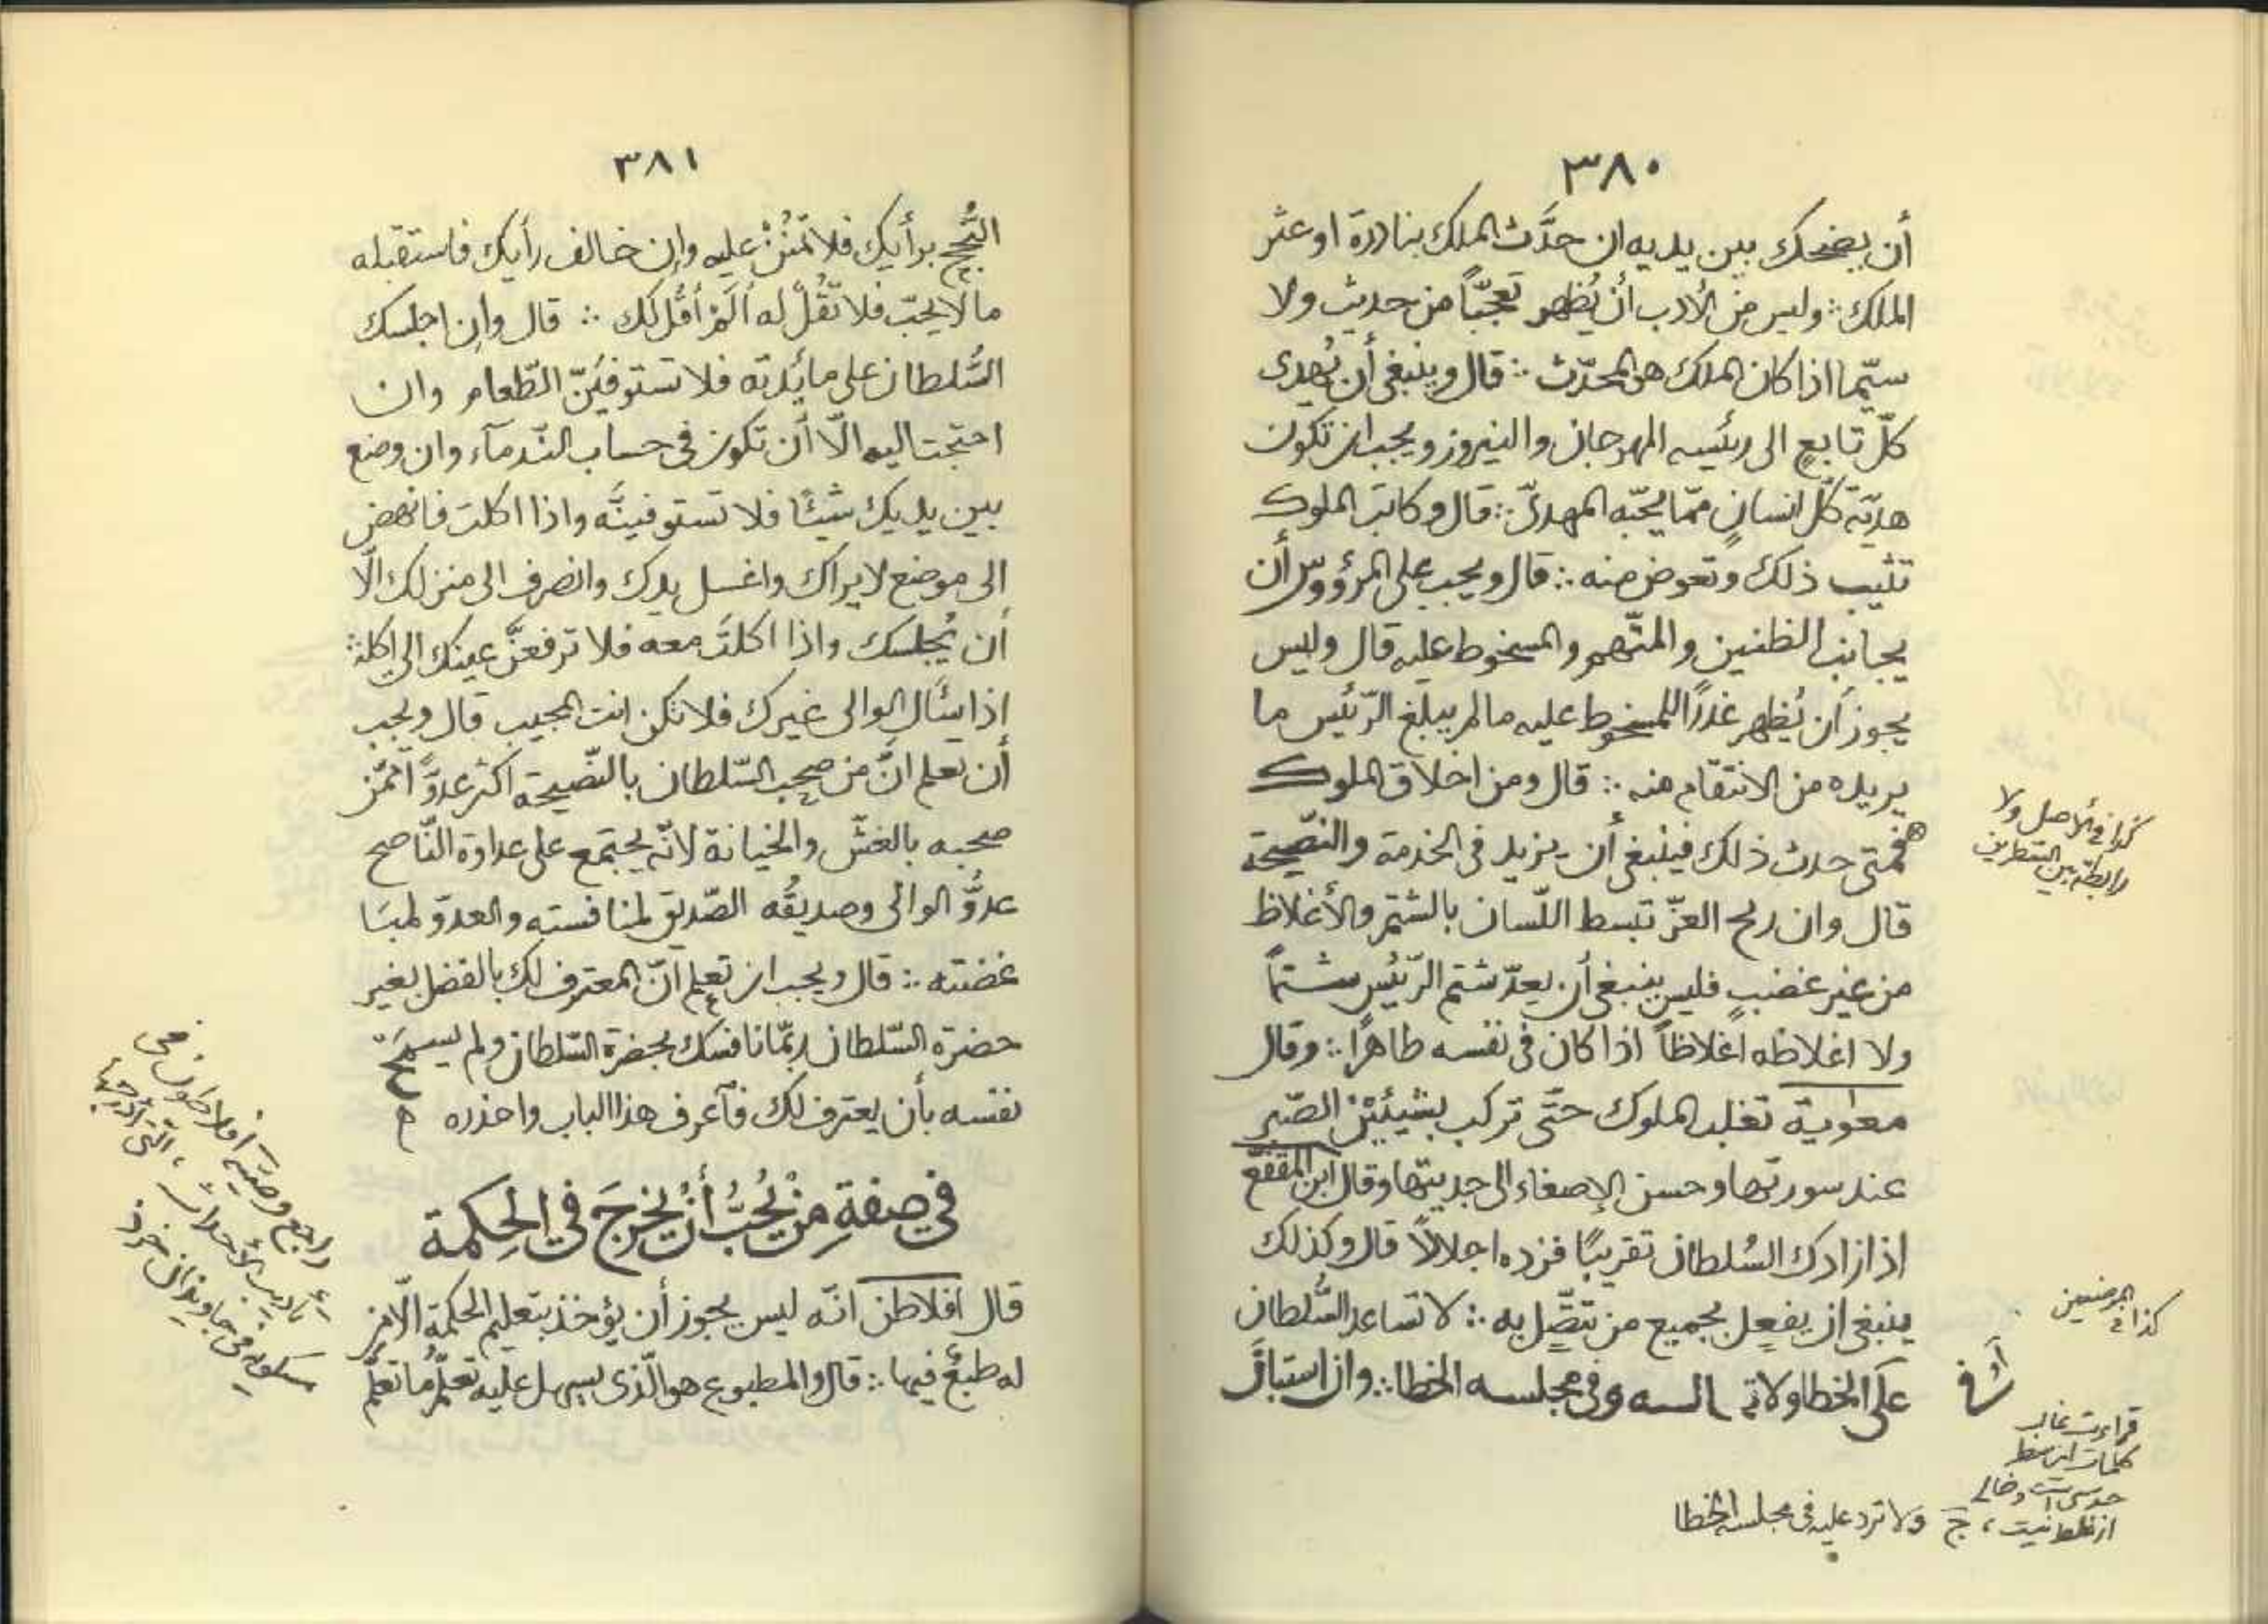 ٣٨٠
أن يضحك بين يديه ان حدَّث الملك بنادرة او عثر
الملك ∴ وليس من الأدب أن يُظهر تعجّباً من حديث ولا
سيّما اذا كان الملك هو المحدّث ∴ قال وينبغي أن يُهدى
كلّ تابعٍ الى رئيسه المهرجان والنيروز ويجب ان تكون
هديّة كلّ انسانٍ ممّا يحبّه المهدىّ ∴ قال وكانت الملوك
تثيب ذلك وتعوض منه ∴ قال ويجب على المرؤوس أن
يجانب الظنين والمتّهم والمسخوط عليه قال وليس
يجوز أن يُظهر عذراً للمسخوط عليه ما لم يبلغ الرّئيس ما
يريده من الانتقام منه ∴ قال ومن اخلاق الملوك
فمتى حدث ذلك فينبغي أن يزيد في الخدمة والنّصيحة
قال وان ريح العزّ تبسط اللّسان بالشتم والأغلاظ
من غير غضبٍ فليس ينبغي أن يعدّ شتم الرّئيس شتماً
ولا اغلاظه اغلاظاً اذا كان في نفسه طاهراً ∴ وقال
معوية تغلب الملوك حتّى تركب بشيئينْ الصّبر
عند سورتها وحسن الإصغاء الى حديثها وقال ابن المقفّع
اذا زادك السُلطان تقريبًا فزده اجلالاً قال وكذلك
ينبغي ان يفعل بجميع من تتّصل به ∴ لا تساعد السُّلطان
على الخطا ولا السه وفي مجلسه الخطا ∴ وان استبان
كذا في الأصل ولا
رابطة بين السّطرين
كذا في الموضعين
قراءت غالب
كلمات اين سطر
حدسى است وخالى
از غلط نيست، ج ولا ترد عليه في مجلسه الخطا
٣٨١
النُّجح برأيك فلا تمنُنْ عليه وإن خالف رأيك فاستقبله
ما لا يحبّ فلا تقُلْ له ألَمْ أقُل لك ∴ قال وان اجلسك
السُّلطان على مائدته فلا تستوفينّ الطّعام وان
احتجت اليه الّا أن تكون في حساب النّدمآء وان وضع
بين يديك شيئًا فلا تستوفينَّه واذا اكلت فانهض
الى موضع لا يراك واغسل يدك وانصرف الى منزلك الّا
أن يُجلسك واذا اكلتَ معه فلا ترفعنَّ عينك الى اكله ∴
إذا سأل الوالى غيرك فلا تكن انت المجيب قال ويجب
أن تعلم انَّ من صحب السّلطان بالنّصيحة اكثر عدوًّا ممّن
صحبه بالغشّ والخيانة لانّه يجتمع على عداوة النّاصح
عدوُّ الوالى وصديقُه الصّديق لمنافسته والعدوّ لمبا
غضته ∴ قال ويجب ان تعلم انّ المعترف لك بالفضل بغير
حضرة السّلطان ربّما نافسك بحضرة السّلطان ولم يسمح
نفسه بأن يعترف لك فآعرف هذا الباب واحذره
في صفةِ منْ يُحبُّ أنْ يَخرجَ في الحِكمة
قال افلاطن انّه ليس يجوز أن يؤخذ بتعليم الحكمة الّا من
له طبعٌ فيها ∴ قال والمطبوع هو الّذى يسهل عليه تعلّمُ ما تعلّم
راجع وصيّة افلاطون في
تأديب الأحداث، التي أدرجها
مسكويه في جاويذان خرد